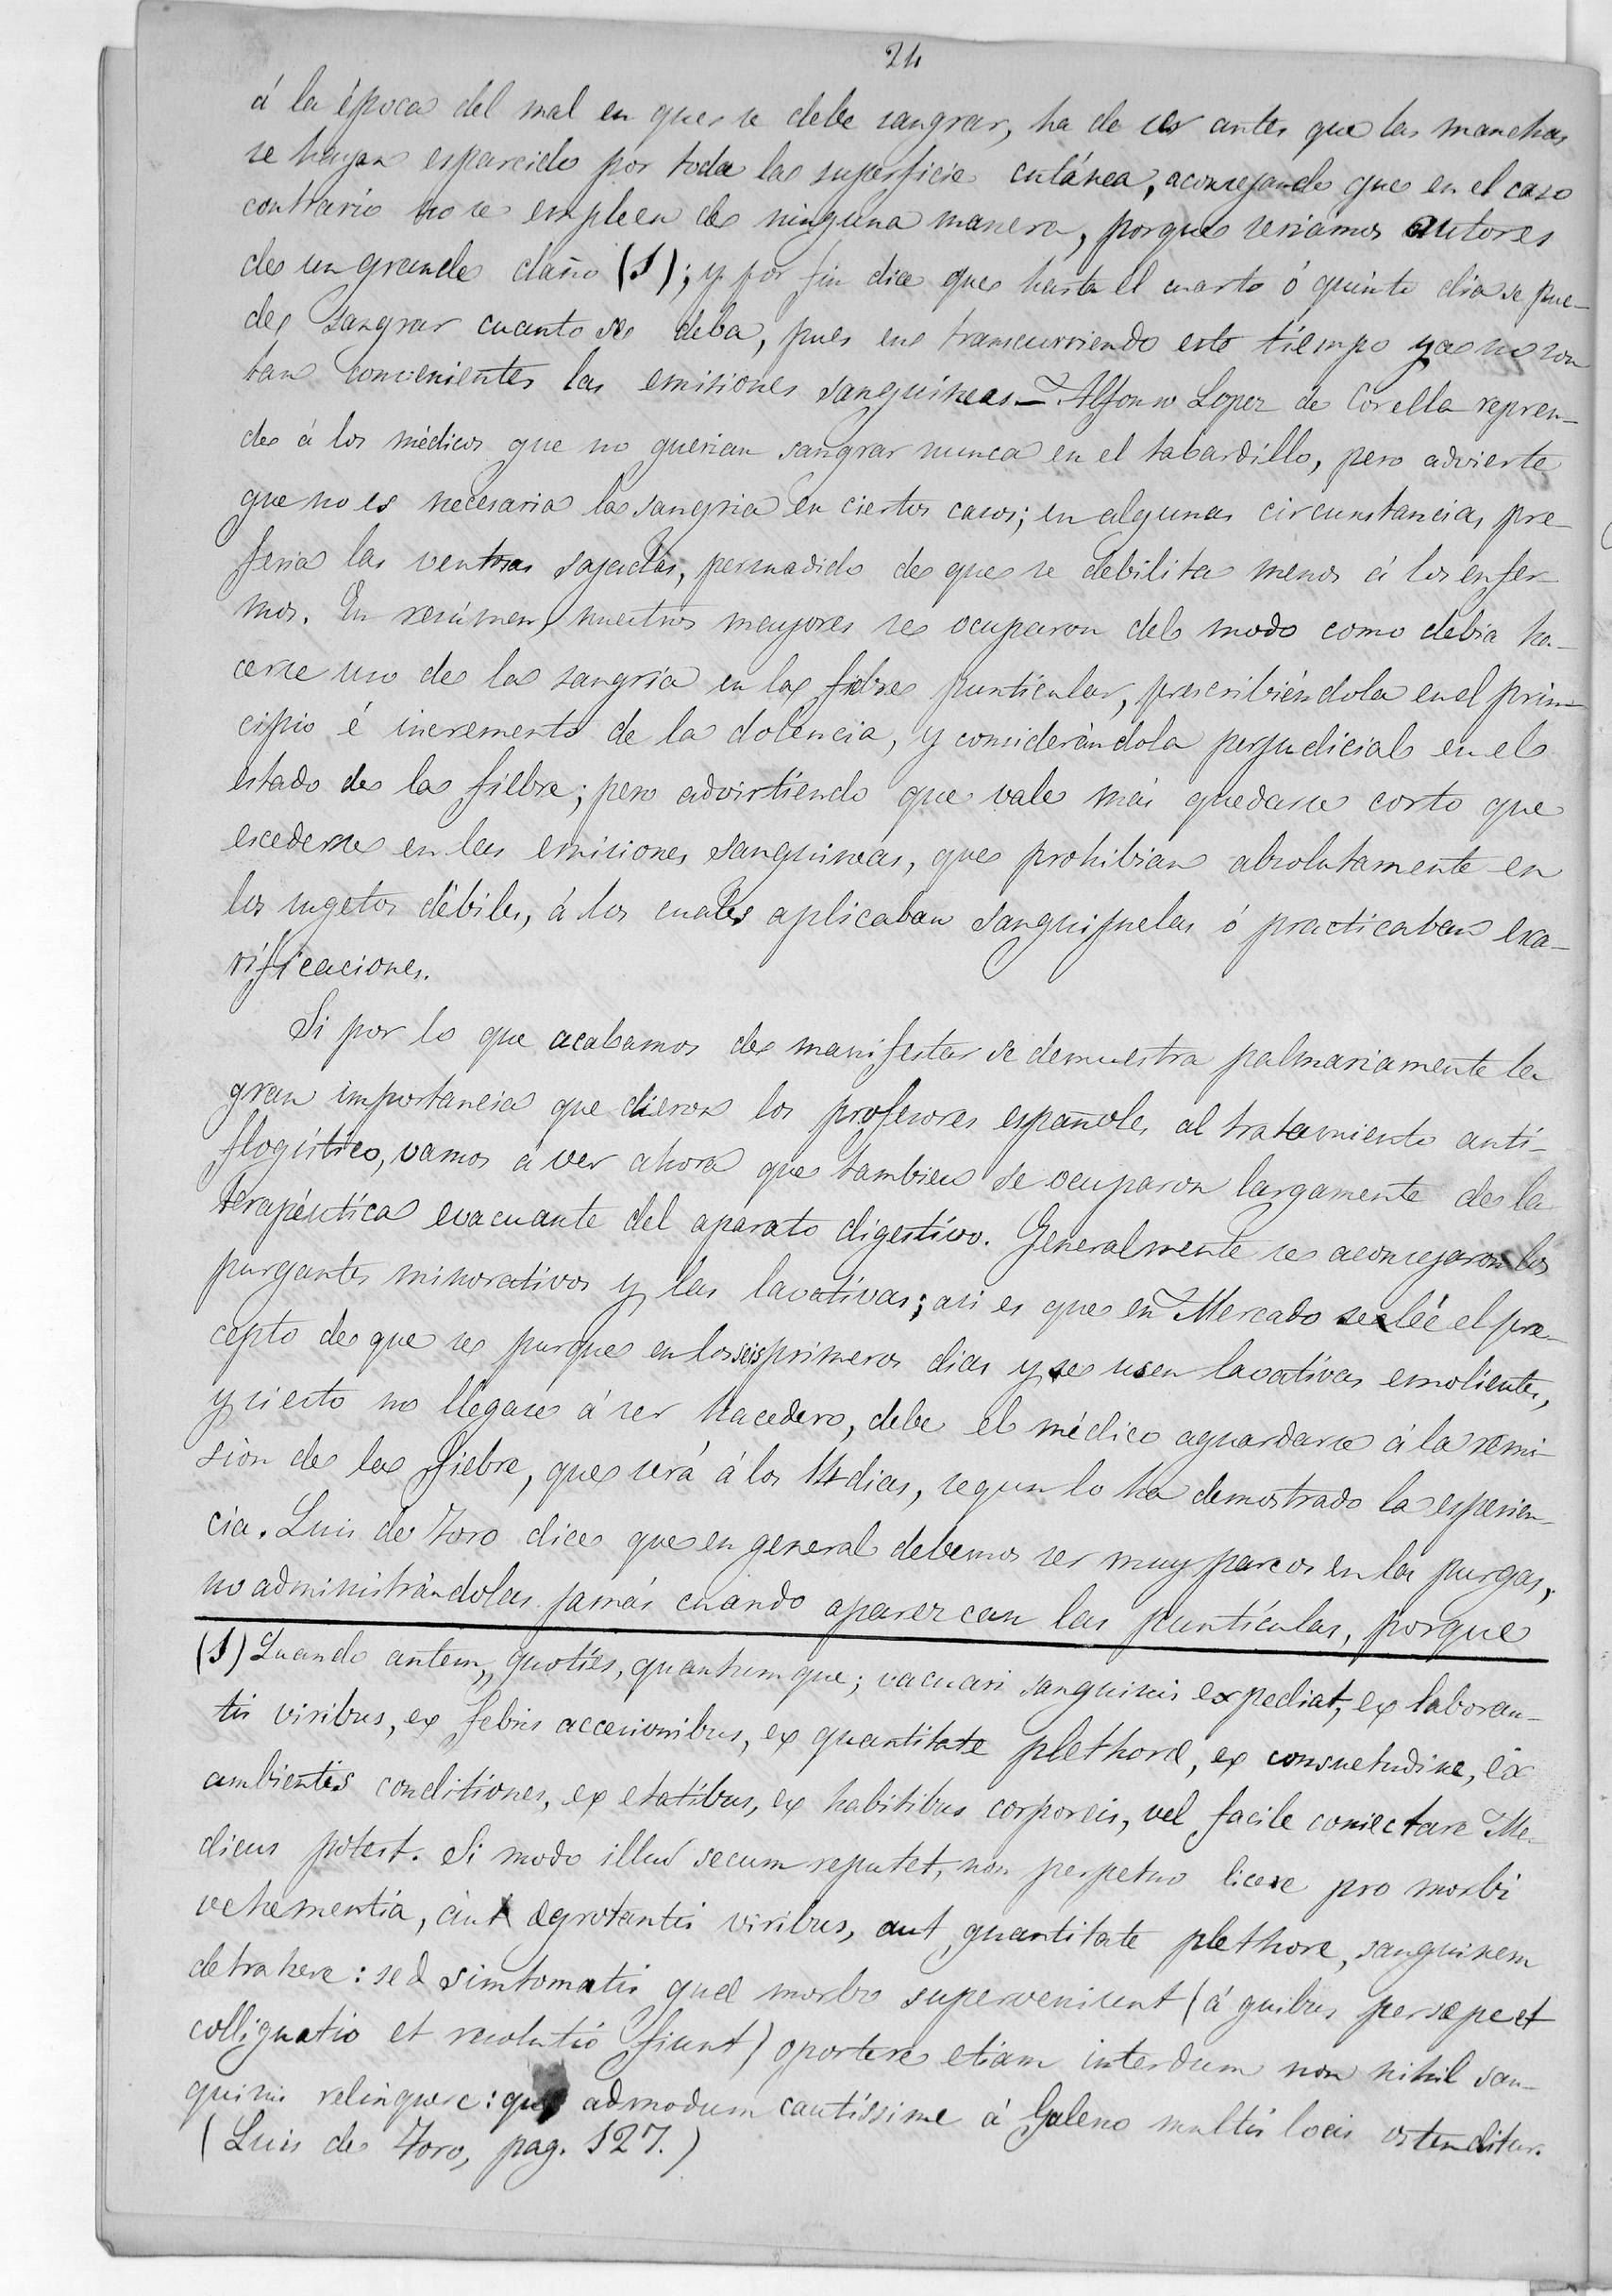 24
á la época del mal en que se debe sangrar, ha de ser antes que las manchas
se hayan esparcido por toda la superficie cutánea, aconsejando que en el caso
contrario no se empleen de ninguna manera, porque seriamos autores
de un grande daño (1); y por fin dice que hasta el cuarto ó quinto dia se pue-
de sangrar cuanto se deba, pues en transcurriendo este tiempo ya no son
tan convenientes las emisiones sanguineas.— Alfonso Lopez de Corella repren-
de á los médicos que no querian sangrar nunca en el tabardillo, pero advierte
que no es necesaria la sangria en ciertos casos; en algunas circunstancias, pre-
feria las ventosas sajadas, persuadido de que se debilita menos á los enfer-
mos. En resúmen, nuestros mayores se ocuparon del modo como debia ha-
cerse uso de la sangría en la fiebre punticular, prescribiéndola en el prin-
cipio é incremento de la dolencia, y considerándola perjudicial en el
estado de la fiebre; pero advirtiendo que vale más quedarse corto que
escederse en las emisiones sanguineas, que prohibian absolutamente en
los sugetos débiles, á los cuales aplicaban sanguijuelas ó practicaban esca-
rificaciones.
Si por lo que acabamos de manifestar se demuestra palmariamente la
gran importancia que dieron los profesores españoles al tratamiento anti-
flogístico, vamos á ver ahora que tambien se ocuparon largamente de la
terapéutica evacuante del aparato digestivo. Generalmente se aconsejaron los
purgantes minorativos y las lavativas; asi es que en Mercado se lée el pre-
cepto de que se purgue en los seis primeros dias y se usen lavativas emolientes,
y si esto no llegase á ser hacedero, debe el médico aguardarse á la remi-
sion de la fiebre, que será á los 14 dias, segun lo ha demostrado la esperien-
cia. Luis de Toro dice que en general debemos ser muy parcos en las purgas,
no administrándolas jamás cuando aparezcan las puntículas, porque
(1) Quando autem, quoties, quantumque; vacuari sanguinis expediat, ex laboran-
tis viribus, ex febris accesionibus, ex quantitate plethoræ, ex consuetudine, ex
ambientis conditiones, ex etatibus, ex habitibus corporeis, vel facile coniectare Me-
dicus potest. Si modo illud secum reputet, non perpetuo licere pro morbi
vehementia, aut ægrotantis viribus, aut quantitate plethore, sanguinem
detrahere: sed simtomatis quæ morbo supervenirent (á quibus persæpe et
colliquatio et resolutió fiunt) oportere etiam interdum non nihil san-
guinis relinquere: admodum cautissime á Galeno multis locis ostenditur.
(Luis de Toro, pag. 127.)